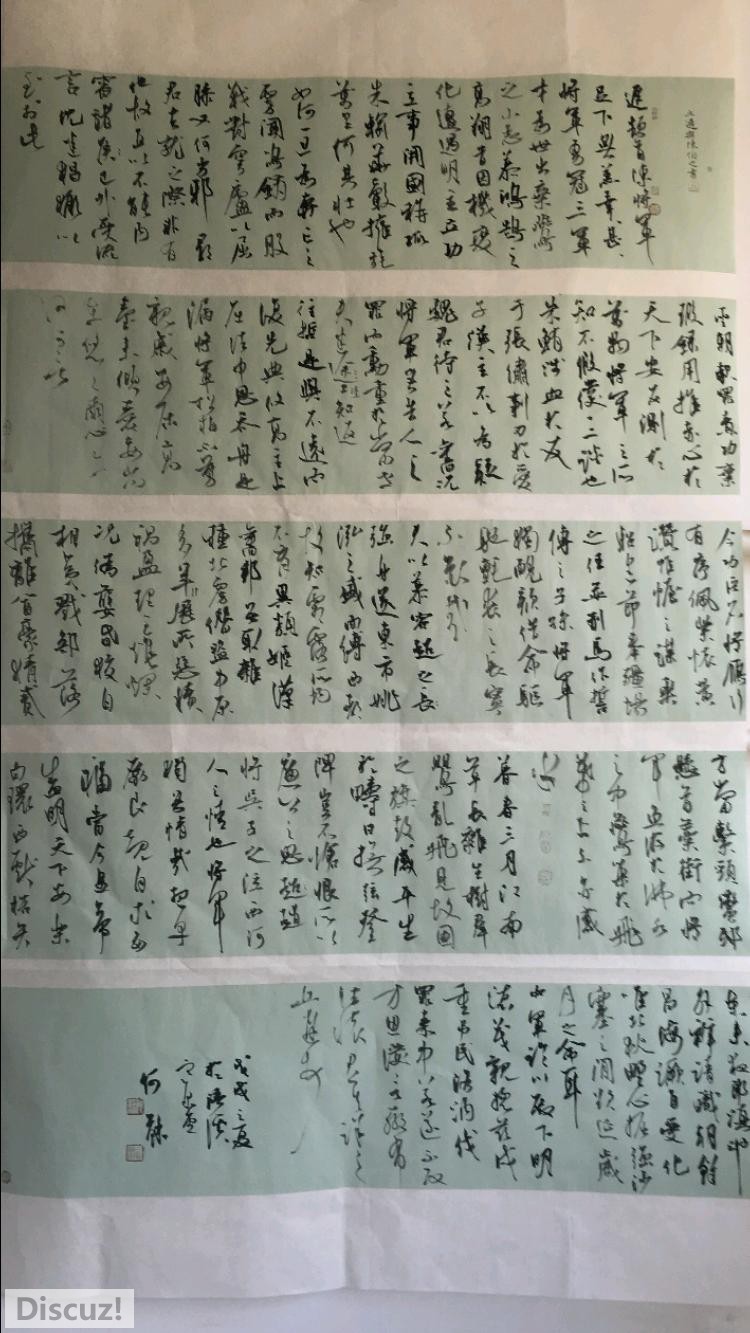 丘遲與陳伯之書
遲頓首陳將軍
足下無恙幸甚〻
將軍勇冠三軍
才為世出棄燕雀
之小志慕鴻鵠之
高翔昔因機變
化遭遇明主立功
立事開國稱孤
朱輪華轂擁旄
萬里何其壯也
如何一旦為奔亡之
虜聞鳴鏑而股
戰對穹廬以屈
膝又何劣邪 尋
君去就之際非有
他故直以不能內
審諸己外受流
言沈迷猖獗以
至於此
聖朝赦罪責功棄
瑕錄用推赤心於
天下安反側於
萬物將軍之所
知不假僕一二談也
朱鮪涉血於友
于張繡剚刃於愛
子漢主不以為疑
魏君待之若舊況
將軍無昔人之
罪而勳重於當世
夫迷途知返
往哲是與不遠而
復先典攸高主上
屈法申恩吞舟是
漏將軍松柏不翦
親戚安居高
臺未傾愛妾尚
在悠悠爾心亦
何可言
今功臣名將雁行
有序佩紫懷黃
讚帷幄之謀乘
軺建節奉疆埸
之任並刑馬作誓
傳之子孫將軍
獨靦顏借命驅
馳氈裘之長寧
不哀哉
夫以慕容超之
強身送東市姚
泓之盛面縛西都
故知霜露所均
不育異類姬漢
舊邦無取雜
種北虜僭盜中原
多年惡積
禍盈理至燋爛
況偽孽昏狡自
相夷戮部落
攜離酋豪猜貳
方當繫頸蠻邸
懸首藁街而將
軍魚游於沸
之中燕巢於飛
幕之上不亦惑
乎
暮春三月江南
草長雜生樹群
鶯亂飛見故國
之旗鼓感平生
於疇日撫弦登
陴豈不愴悢所以
廉公之思趙
將吳子之泣西河
人之情也將軍
獨無情哉想早
勵良規自求多
福當今皇帝
盛明天下安樂
白環西獻楛矢
東來夜郎滇池
解辮請職朝鮮
昌海蹶角受化
唯北狄野心掘強沙
塞之間欲延歲
月之命耳
中軍臨川殿下明
德茂親總茲戎
重弔民洛汭伐
罪秦中若遂不改
方思僕言聊布
往懷君其詳之
丘遲頓首
戊戌之夏
於溪
何
Discuz!